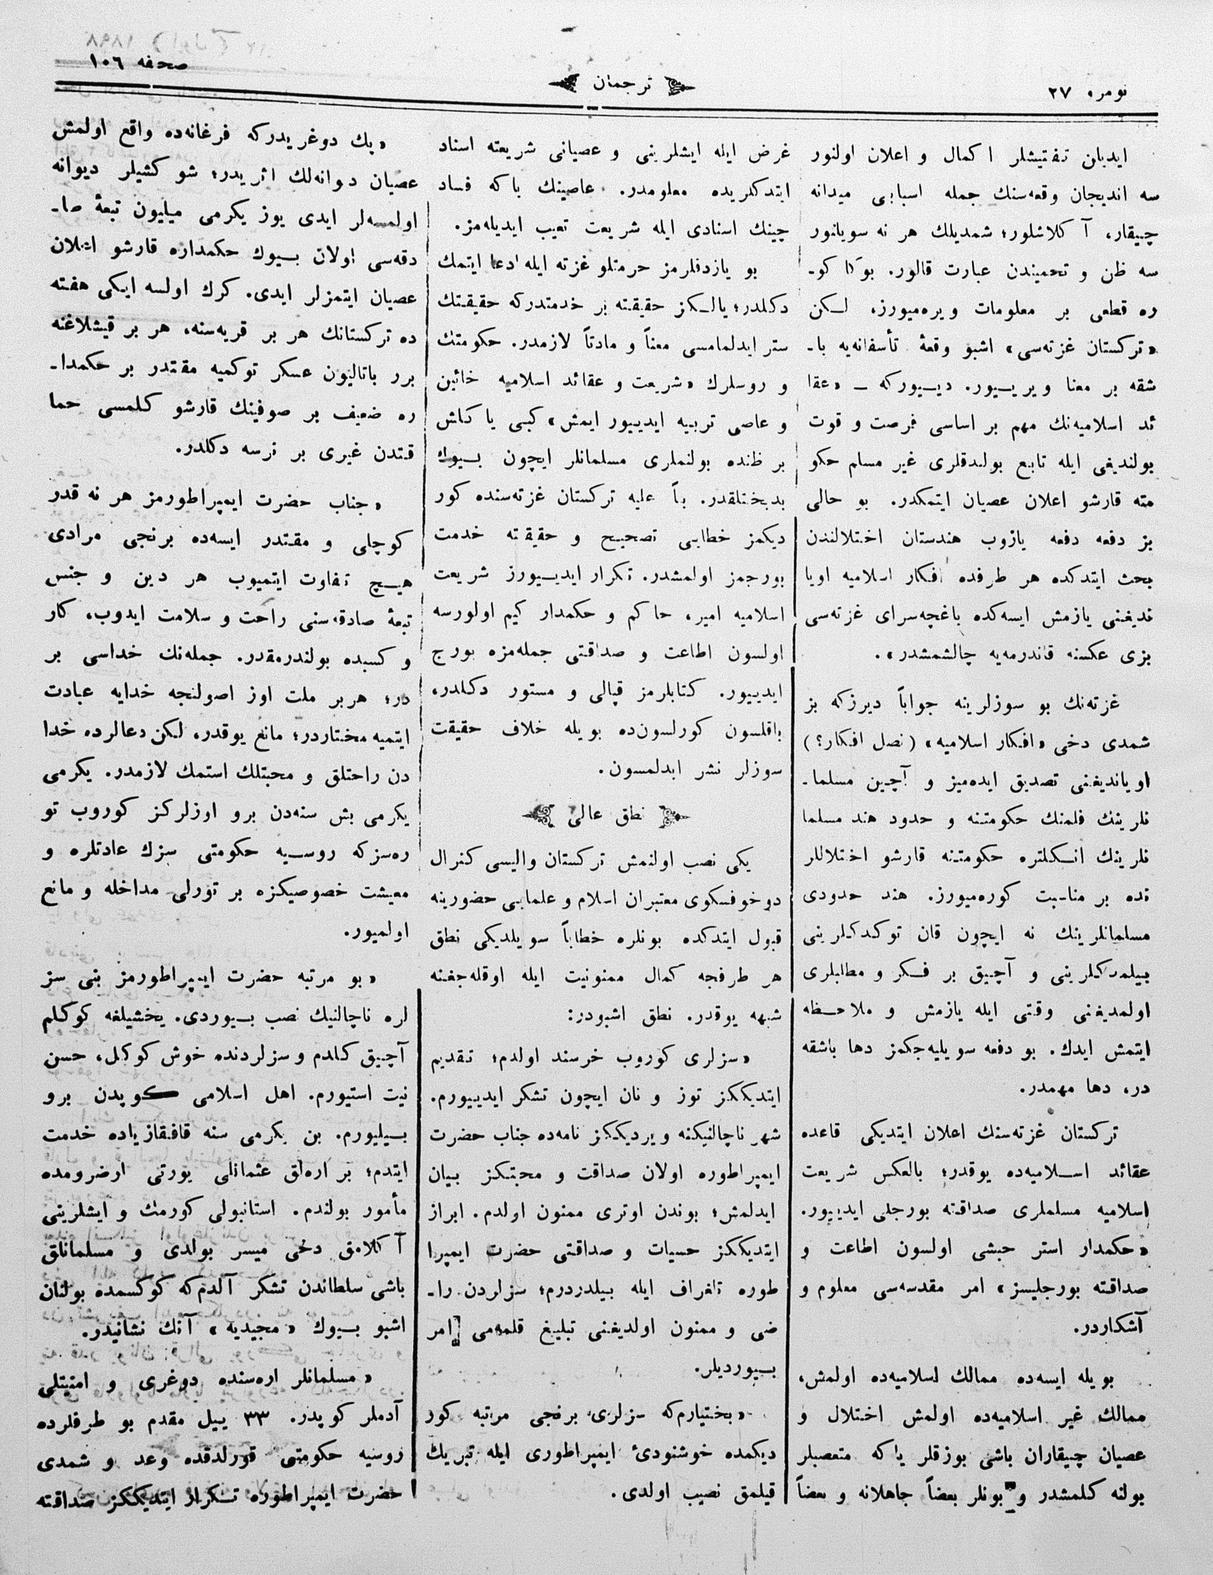 نومرو ٢٧
ترجمان
صحفه ١٠٦
ایدیان تفتیشلر اکمال و اعلان اولنور
سه اندیجان وقعه‌سنك جمله اسبابی میدانه
چیقار، آکلاشلور؛ شمدیلك هر نه سویلنور
سه ظن و تخمیندن عبارت قالور. بوکا کو-
ره قطعی بر معلومات ویره‌میورز، لـکن
«ترکستان غزته‌سی» اشبو وقعهٔ تأسفانه‌یه با-
شقه بر معنا ویریـیور. دیـیورکه ــ «عقا
ئد اسلامیه‌نك مهم بر اساسی فرصت و قوت
بولندیغی ایله تابع بولندقلری غیر مسلم حکو
مته قارشو اعلان عصیان ایتمکدر. بو حالی
بز دفعه دفعه یازوب هندستان اختلالندن
بحث ایتدکده هر طرفده افکار اسلامیه اویا
ندیغنی یازمش ایسه‌کده باغچه‌سرای غزته‌سی
بزی عکسنه قاندرمه‌یه چالشمشدر».
غزته‌نك بو سوزلرینه جواباً دیرزکه بز
شمدی دخی «افکار اسلامیه» (نصل افکار؟)
اویاندیغنی تصدیق ایده‌میز و آچین مسلما-
نلرینك فلمنك حکومتنه و حدود هند مسلما
نلرینك انـکلتره حکومتنه قارشو اختلاللر
نده بر مناسبت کوره‌میورز. هند حدودی
مسلمانلرینك نه ایچون قان توکدکلرینی
بیلمدکلرینی و آچیق بر فـکر و مطلبلری
اولمدیغنی وقتی ایله یازمش و ملاحـظه
ایتمش ایدك. بو دفعه سویلیه‌جکمز دها باشقه
در، دها مهمدر.
ترکستان غزته‌سنك اعلان ایتدیکی قاعده
عقائد اسـلامیه‌ده یوقدر؛ بالعکس شریعت
اسلامیه مسلملری صداقته بورجلی ایدییور.
«حکمدار استر حبشی اولسون اطاعت و
صداقته بورجلیسز» امر مقدسه‌سی معلوم و
آشکاردر.
بویله ایسه‌ده ممالك اسلامیه‌ده اولمش،
ممالك غیر اسلامیه‌ده اولمش اختلال و
عصیان چیقاران باشی بوزقلر یاکه متعصبلر
بولنه کلمشدر و بونلر بعضاً جاهلانه و بعضاً
غرض ایله ایشلرینی و عصیانی شریعته اسناد
ابتدکلریده معلومدر. عاصینك یاکه فساد
چینك اسنادی ایله شریعت تعیب ایدیله‌مز.
بو یازدقلرمز حرمتلو غزته ایله ادعا ایتمك
دکلدر؛ یالـکز حقیقته بر خدمتدرکه حقیقتك
ستر ایدلمامسی معناً و مادتاً لازمدر. حکومتك
و روسلرك «شریعت و عقائد اسلامیه خائین
و عاصی تربیه ایدییور ایمش» کبی یاکلش
بر ظنده بولنملری مسلمانلر ایچون بـیوك
بدبختلقدر. بناً علیه ترکستان غزته‌سنده کور
دیکمز خطایی تصحیح و حقیقته خدمت
بورجمز اولمشدر. تکرار ایدیـیورز شریعت
اسلامیه امیر، حاکم و حکمدار کیم اولورسه
اولسون اطاعت و صداقتی جمله‌مزه بورج
ایدییور. کتابلرمز قپالی و مستور دکلدر،
باقلسون کورلسون‌ده بویله خلاف حقیقت
سوزلر نشر ایدلمسون.
نطق عالی
یکی نصب اولنمش ترکستان والیسی کنرال
دوخوفسکوی معتبران اسلام و علمایی حضورینه
قبول ایتدکده بونلره خطاباً سویلدیکی نطق
هر طرفجه کمال ممنونیت ایله اوقله‌جغنه
شبهه یوقدر. نطق اشبودر:
«سزلری کوروب خرسند اولدم؛ تقدیم
ایتدیککز توز و نان ایچون تشکر ایدییورم.
شهر ناچالنیکنه ویردیککز نامه‌ده جناب حضرت
ایمپراطوره اولان صداقت و محبتکز بیان
ایدلمش؛ بوندن اوتری ممنون اولدم. ابراز
ایتدیککز حسیات و صداقتی حضرت ایمپرا
طوره تلغراف ایله بیلدردرم؛ سزلردن را-
ضی و ممنون اولدیغنی تبلیغ قلمه‌می امر
بـیوردیلر.
«بختیارم‌که سزلری برنجی مرتبه کور
دیکمده خوشنودیٔ ایمپراطوری ایله تبریك
قیلمق نصیب اولدی.
«پك دوغریدرکه فرغانه‌ده واقع اولمش
عصیان دوانه‌لك اثریدر؛ شو کشیلر دیوانه
اولمسه‌لر ایدی یوز یکرمی میلیون تبعهٔ صا-
دقه‌سی اولان بـیوك حکمداره قارشو اتلان
عصیان ایتمزلر ایدی. کرك اولسه ایکی هفته
ده ترکستانك هر بر قریه‌سنه، هر بر قیشلاغنه
برر باتالیون عسکر توکمیه مقتدر بر حکمدا-
ره ضعیف بر صوفینك قارشو کـلمسی حما
قتدن غیری بر نرسه دکلدر.
«جناب حضرت ایمپراطورمز هر نه قدر
کوچلی و مقتدر ایسه‌ده برنجی مرادی
هیـچ تفاوت ایتمیوب هر دین و جنس
تبعهٔ صادقه‌سنی راحت و سلامت ایدوب، کار
و کسبده بولندرمقدر. جمله‌نك خداسی بر
در؛ هربر ملت اوز اصولنجه خدایه عبادت
ایتمیه مختاردر؛ مانع یوقدر، لکن دعالرده خدا
دن راحتلق و محبتلك استمك لازمدر. یکرمی
یکرمی بش سنه‌دن برو اوزلرکز کوروب تو
ره‌سزکه روسـیه حکومتی سزك عادتلره و
معیشت خصوصیکزه بر تورلی مداخله و مانع
اولمیور.
«بو مرتبه حضرت ایمپراطورمز بنی سز
لره ناچالنیك نصب بـیوردی. یخشیلغه کوکلم
آچیق کلدم و سزلردنده خوش کوکل، حسن
نیت استیورم. اهل اسلامی کوپدن برو
بـیلیورم. بن یکرمی سنه قافقازیاده خدمت
ایتدم؛ بر اره‌لق عثمانلی یورتی ارضرومده
مأمور بولندم. استانبولی کورمك و ایشلرینی
آکلامق دخی میسر بولدی و مسلماناق
باشی سلطاندن تشکر آلدم‌که کوکسمده بولنان
اشبو بـیوك «مجیدیه» آنك نشانیدر.
«مسلمانلر اره‌سنده دوغری و امنیتلی
آدملر کوپدر. ٣٣ ییل مقدم بو طرفلرده
روسیه حکومتی قورلدقده وعد و شمدی
حضرت ایمپراطوره تـکرار ایتدیککز صداقته